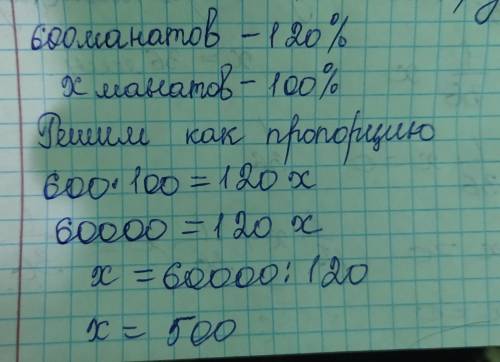 600манатов - 120%
х манатов - 100%
Решим как пропорцию
600·100=120 х
60000=120 х
х = 60000:120
х = 500